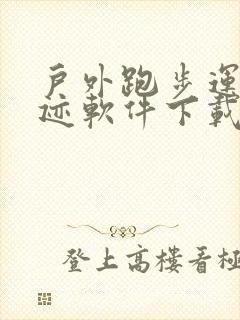 户外跑步運
迹軟件下載
登上高樓看極